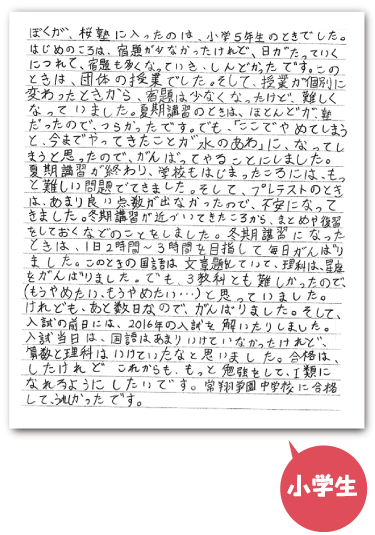 ぼくが、桜塾に入ったのは、小学5年生のときでした。
はじめのころは、宿題が少なかったけれど、日がたっていく
につれて、宿題も多くなっていき、しんどかったです。この
ときは、団体の授業でした。そして、授業が個別に
変わったときから、宿題は少なくなったけど、難しく
なっていました。夏期講習のときは、ほとんどが、塾
だったので、つらかったです。でも、「ここでやめてしまう
と、今までやってきたことが“水のあわ”に、なってし
まうと思ったので、がんばってやることにしました。
夏期講習が終わり、学校もはじまったころには、もっ
と難しい問題がでてきました。そして、プレテストのとき
は、あまり良い点数が出なかったので、不安になって
きました。冬期講習が近づいてきたころから、まとめや復習
をしておくなどのことをしました。冬期講習になった
ときは、1日2時間～3時間を目指して毎日がんばり
ました。このときの国語は文章題をしていて、理科は、星座
をがんばりました。でも、3教科とも難しかったので、
(もうやめたい、もうやめたい…)と思っていました。
けれども、あと数日なので、がんばりました。そして、
入試の前日には、2016年の入試を解いたりしました。
入試当日は、国語はあまりいけていなかったけれど、
算数と理科はいけていたなと思いました。合格は、
したけれど これからも、もっと勉強をして、I類に
なれるようにしたいです。常翔学園中学校に合格
して、うれしかったです。
小学生